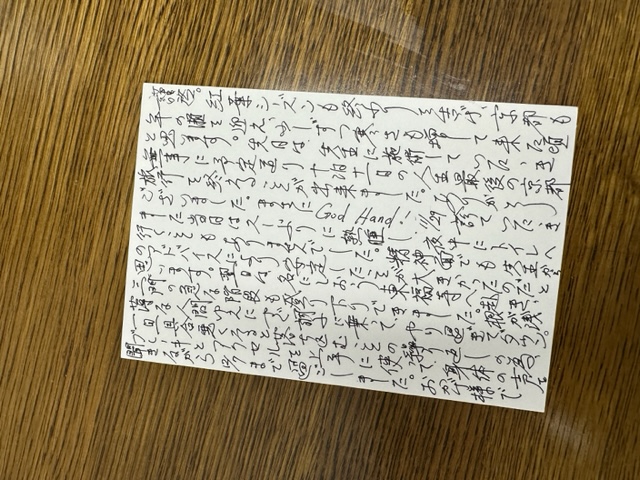 謹啓。紅葉シーズンも終わりを告げ、京都も
年の瀬を迎え、少しずつ寒さも増して来た頃
と思います。先月は、先生に施術していただき
無事に予定通り十泊十一日の人生最後の京都
旅行を終えることが出来ました。ありがとう
ございました。まさに God Hand! 11/29 診ていただき
ました当日はスーッと熟睡し、夜中にトイレへ
行くこともありませんでした。精神面でも先生から
のアドバイスにより安定したことが大きかったのだと
思います。翌日は、名にしおう東福寺へ赴き、
三門の急な階段も登り下りできました。根が浅
薄な人間ゆえにすぐ調子に乗って、やり過ぎてダウン。
一旦具合悪くなると落ち込むことの繰り返しの為
ブレーキとアクセルを上手に使って、身体の声を
聞きながら12/9まで過ごしました。おかげ様で